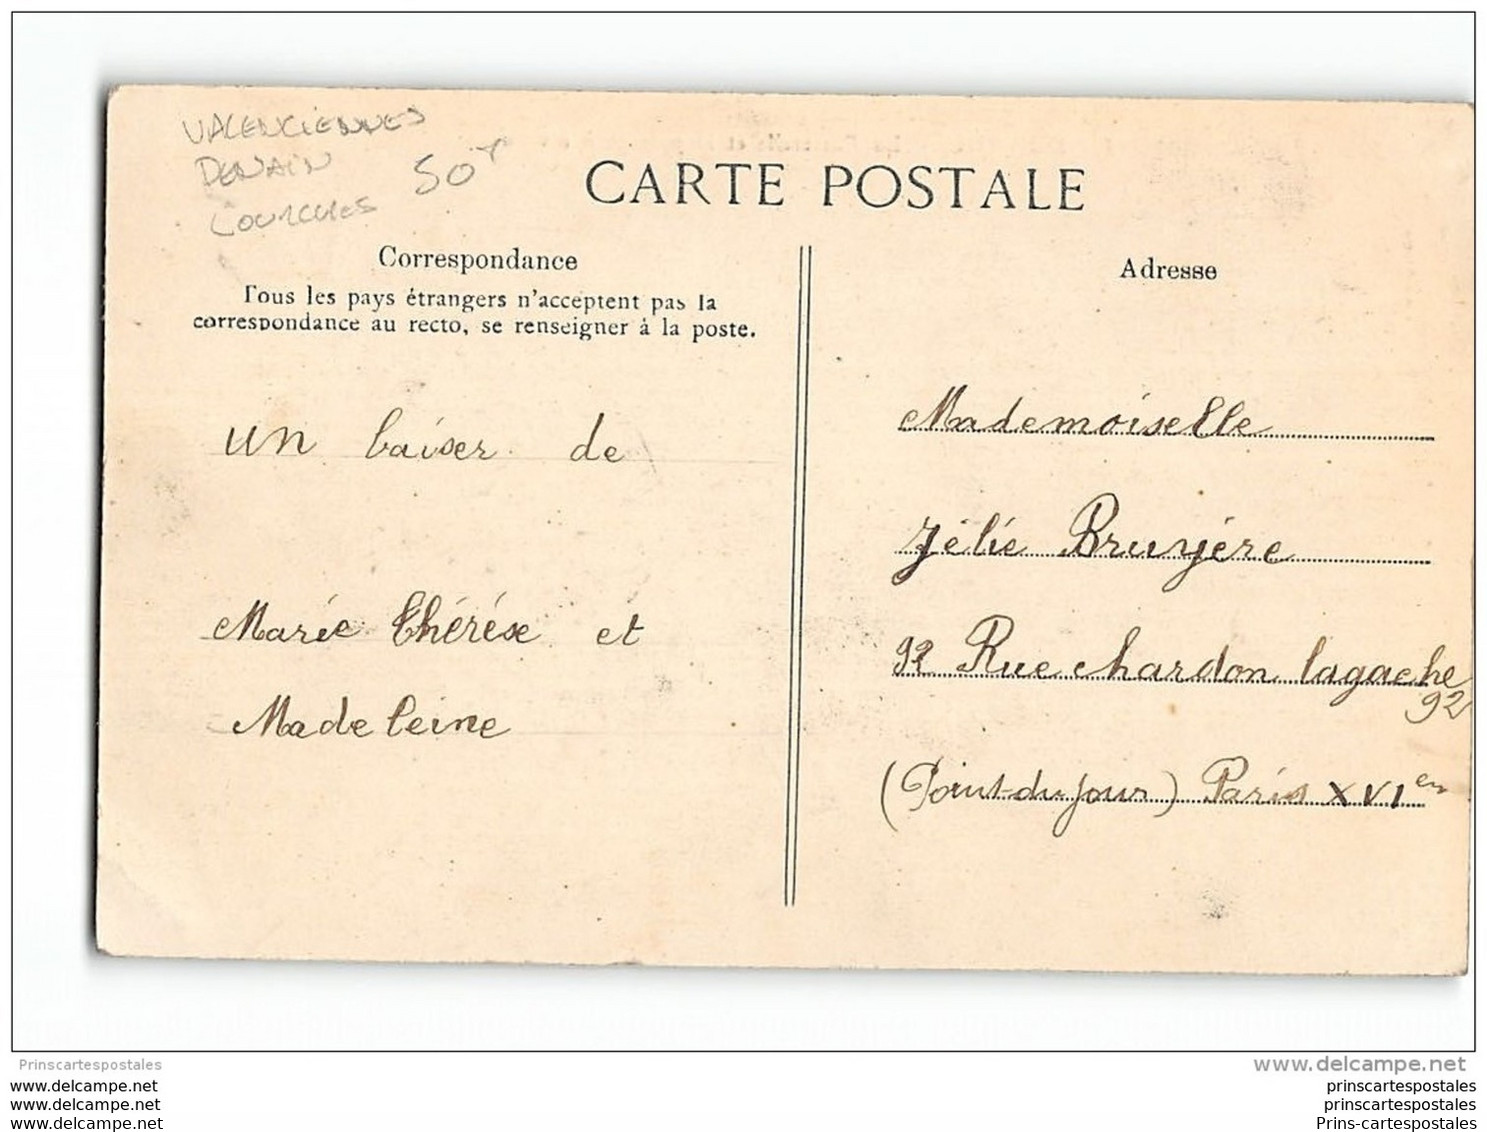 VALENCIENNES
DENAIN
LOURCHES
50
CARTE POSTALE
Correspondance
Tous les pays étrangers n'acceptent pas la
correspondance au recto, se renseigner à la poste.
un baiser de
Marie Thérése et
Madeleine
Adresse
Mademoiselle
Jélie Bruyére
92 Rue chardon lagache
92
(Point-du-Jour) Paris XVI em
Prinscartespostales
www.delcampe.net
www.delcampe.net
www.delcampe.net
www.delcampe.net
prinscartespostales
prinscartespostales
Prins-cartespostales